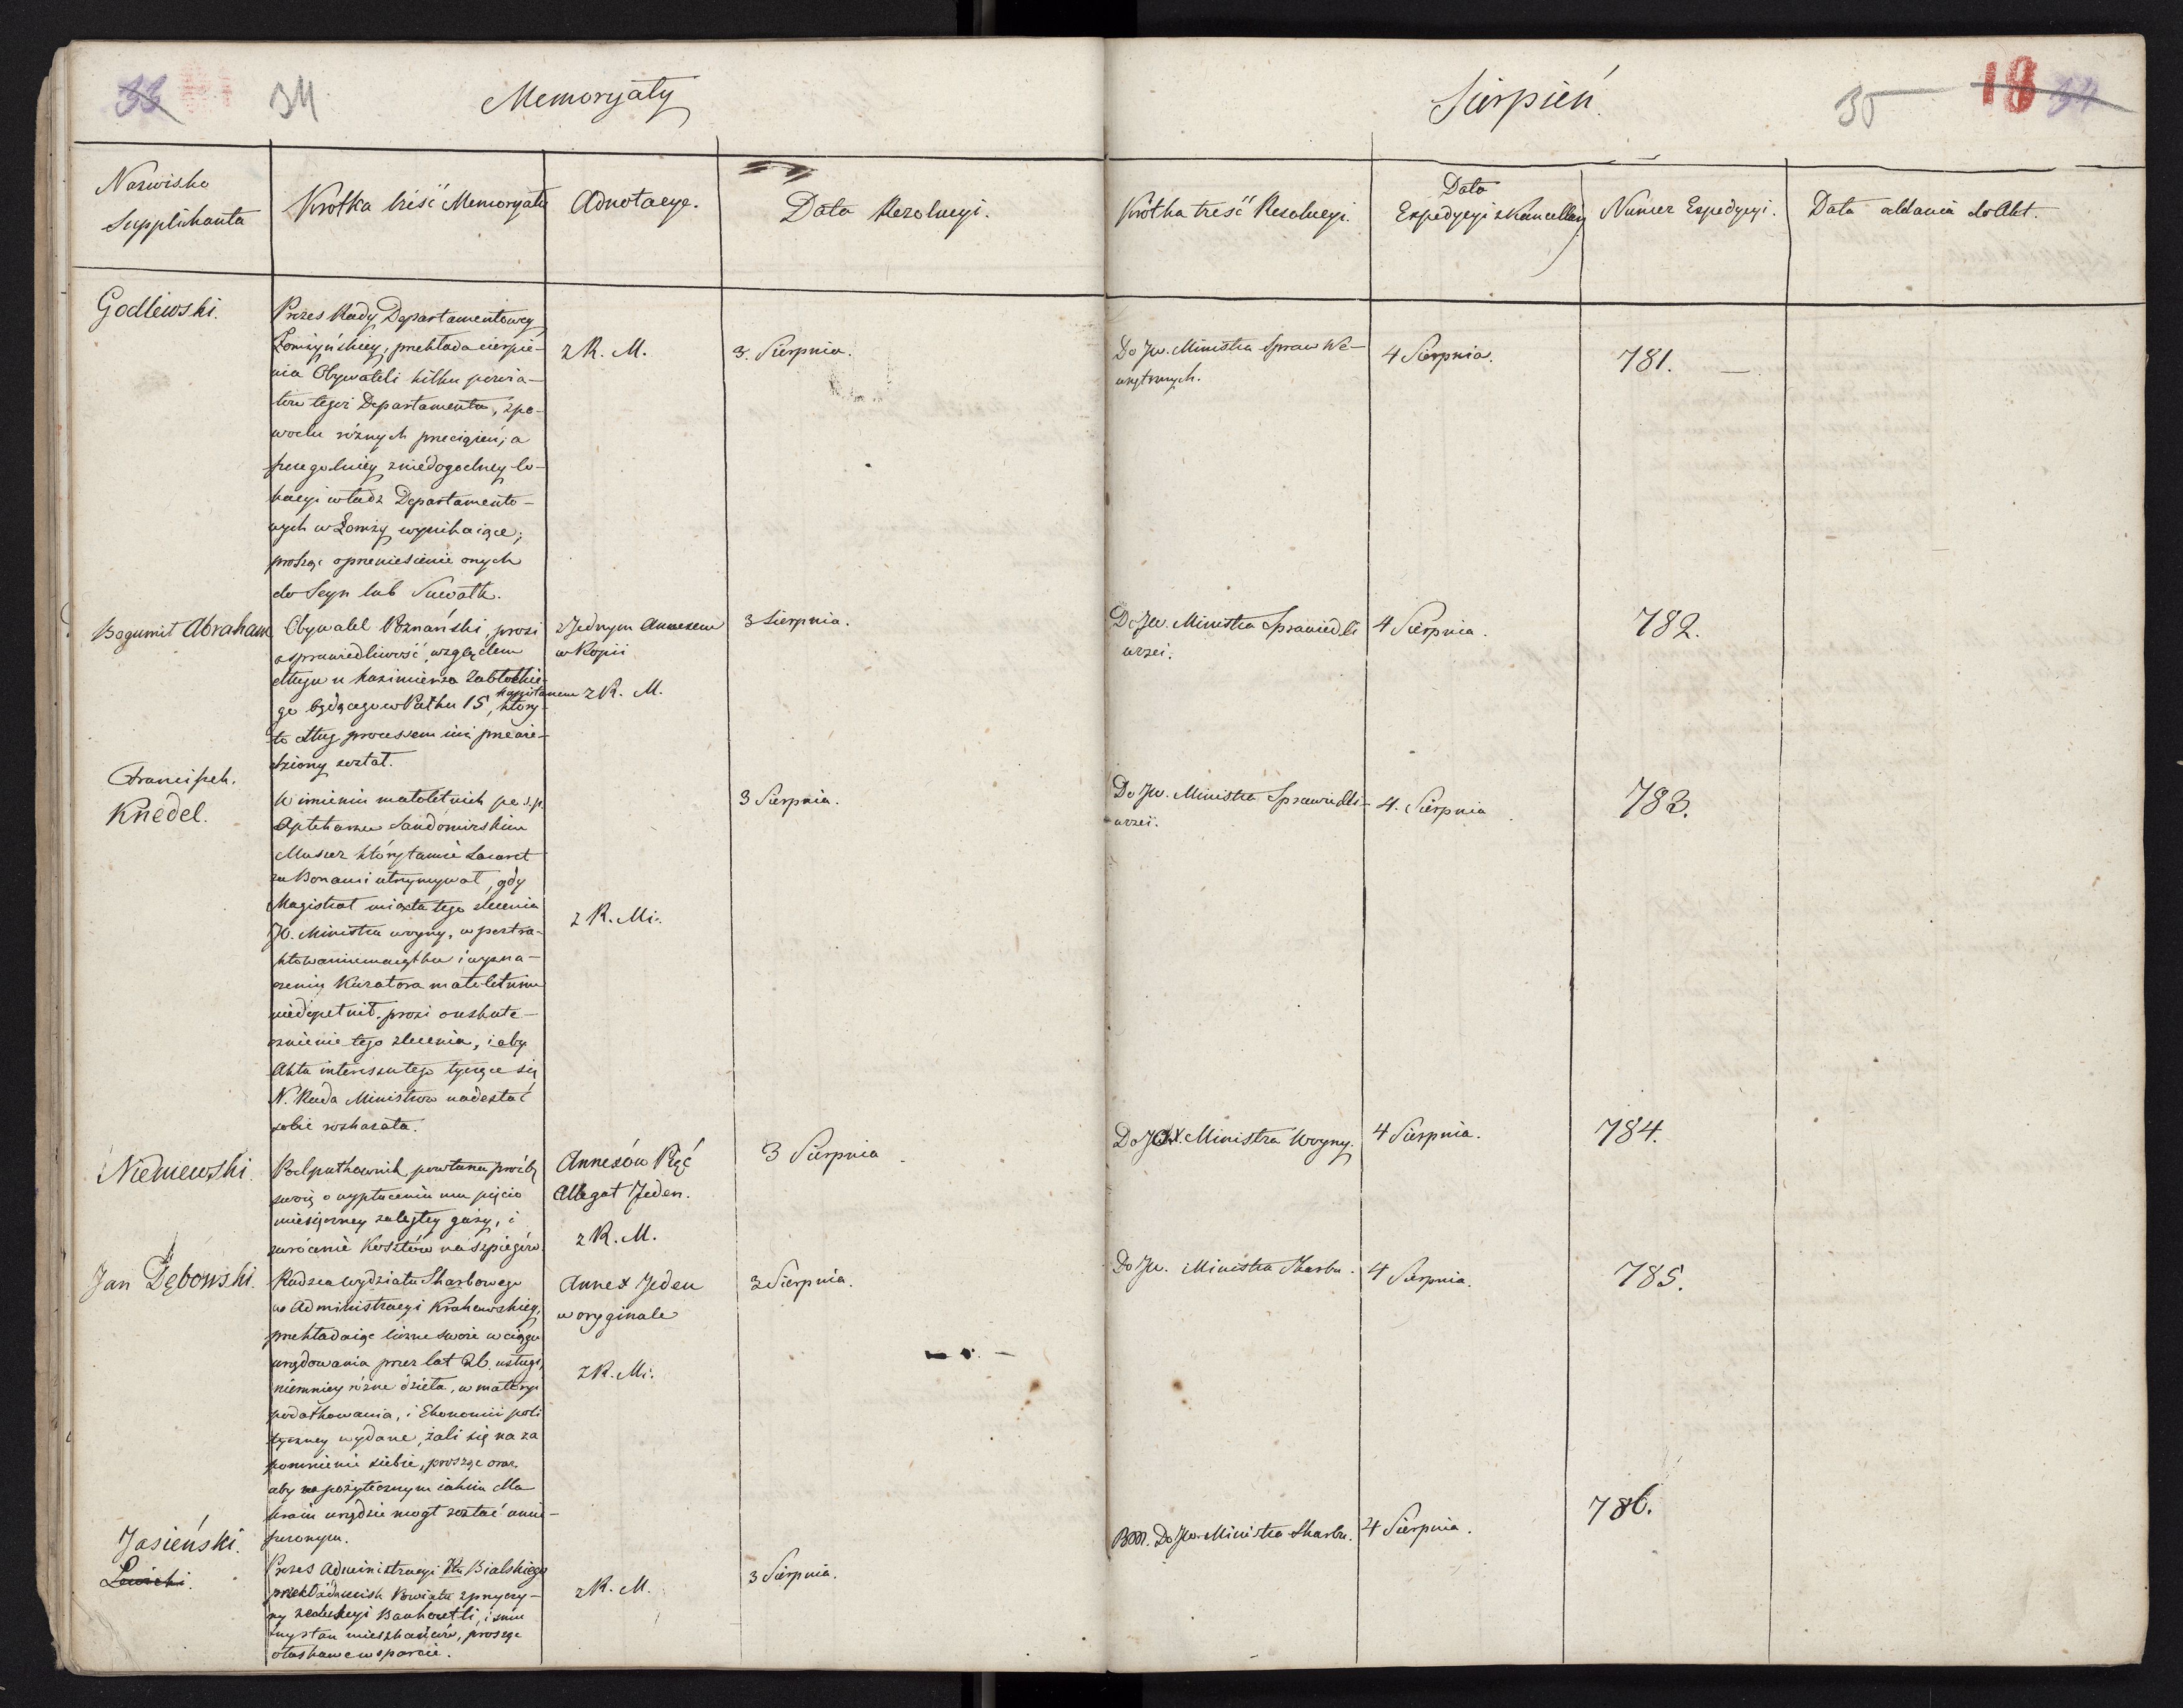 33 34 Memoryały
Sierpień 35 18 34
Nazwisko
Supplikanta
Krótka treść Memoryału
Adnotacye.
Data Rezolucyi.
Krótka treść Rezolucyi.
Data
Expedycyi z Kancellaryi
Numer Expedycyi.
Data oddania do Akt.
Godlewski.
Prezes Rady Departamentowey
Łomżyńskiey, przekłada cierpie-
nia Obywateli kilku powia-
tów tegoż Departamentu, z po-
wodu różnych przeciążeń; a
szczegolniey z niedogodney lo-
kacyi władz Departamento-
wych w Łomży wynikaiące;
prosząc o przeniesienie onych
do Seyn lub Suwałk.
z R. M.
3. Sierpnia.
Do Jw. Ministra Spraw We-
wnętrznych.
4 Sierpnia.
781. —
Bogumił Abraham
Obywatel Poznański, prosi
o sprawiedliwość, względem
długu u Kazimierza Zabłockie-
go będącego w Pułku 15, kapitanem który-
to dług processem iuż przewie-
dziony został.
z Jednym Annexem
w Kopii
z R. M.
3 Sierpnia.
Do Jw. Ministra Sprawiedli
wości.
4 Sierpnia.
782.
Franciszek.
Knedel.
W imieniu małoletnich po ś.p.
Aptekarzu Sandomirskim
Muszer który tamże Lazaret
za Bonami utrzymywał, gdy
Magistrat miasta tego zlecenia
JO. Ministra woyny, w pertra-
ktowaniu maiątku i wyzna-
czeniu Kuratora małoletnim
niedopełnił, prosi o uskute-
cznienie tego zlecenia, i aby
Akta interessu tego tyczące się
N. Rada Ministrów nadesłać
sobie rozkazała.
z R. Mi.
3 Sierpnia.
Do Jw. Ministra Sprawiedli-
wości.
4. Sierpnia
783.
Niemiewski.
Podpułkownik powtarza prośbę
swoię o wypłacenie mu pięcio
miesięczney zaległey gaży, i
zwrócenie Kosztów na szpiegów.
Annexów Pięć
Allegat Jeden.
z R. M.
3 Sierpnia
Do JO. X. Ministra Woyny.
4 Sierpnia.
784.
Jan Dębowski.
Radzca wydziału Skarbowego
w Administracyi Krakowskiey,
przekładaiąc liczne swoie w ciągu
urzędowania przez lat 26. usługi,
niemniey różne dzieła, w materyi
podatkowania, i Ekonomii poli
tyczney wydane, żali się na za
pomnienie siebie, prosząc oraz,
aby na pożytecznym iakim dla
kraiu urzędzie mogł zostać umie-
szczonym.
Annex Jeden
w oryginale
z R. Mi.
3 Sierpnia.
Do Jw. Ministra Skarbu.
4 Sierpnia.
785.
Jasieński.
Lewicki.
Prezes Administracyi Ptu Bialskiego
przekłada ucisk Powiatu z przyczy-
ny redukcyi Bankocetli, i smu
tny stan mieszkańców, prosząc
o łaskawe wsparcie.
z R. M.
3 Sierpnia.
Do Jw. Ministra Skarbu.
4 Sierpnia.
786.